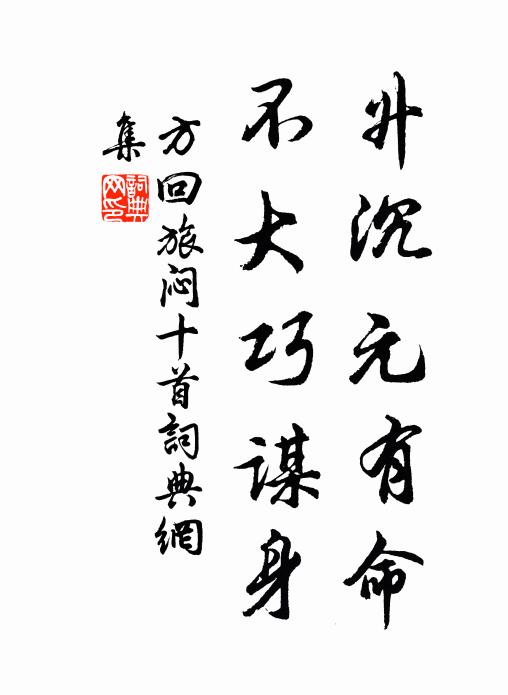 升沉元有命
不大巧謀身
方回旅闷十首詞典網
集
詞典网印